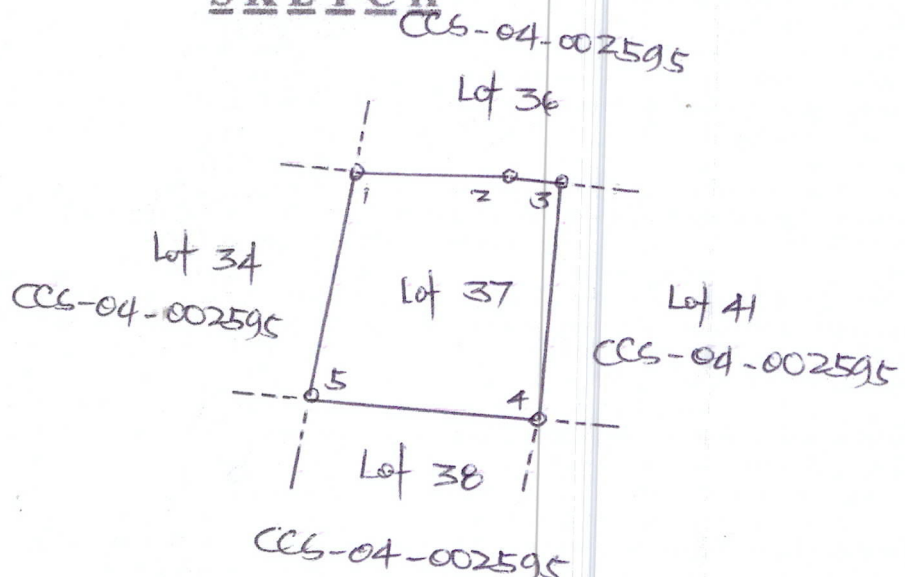 SKETCH
CCS-04-002595
Lot 36
1
2
3
Lot 34
CCS-04-002595
Lot 37
Lot 41
CCS-04-002595
5
4
Lot 38
CCS-04-002595